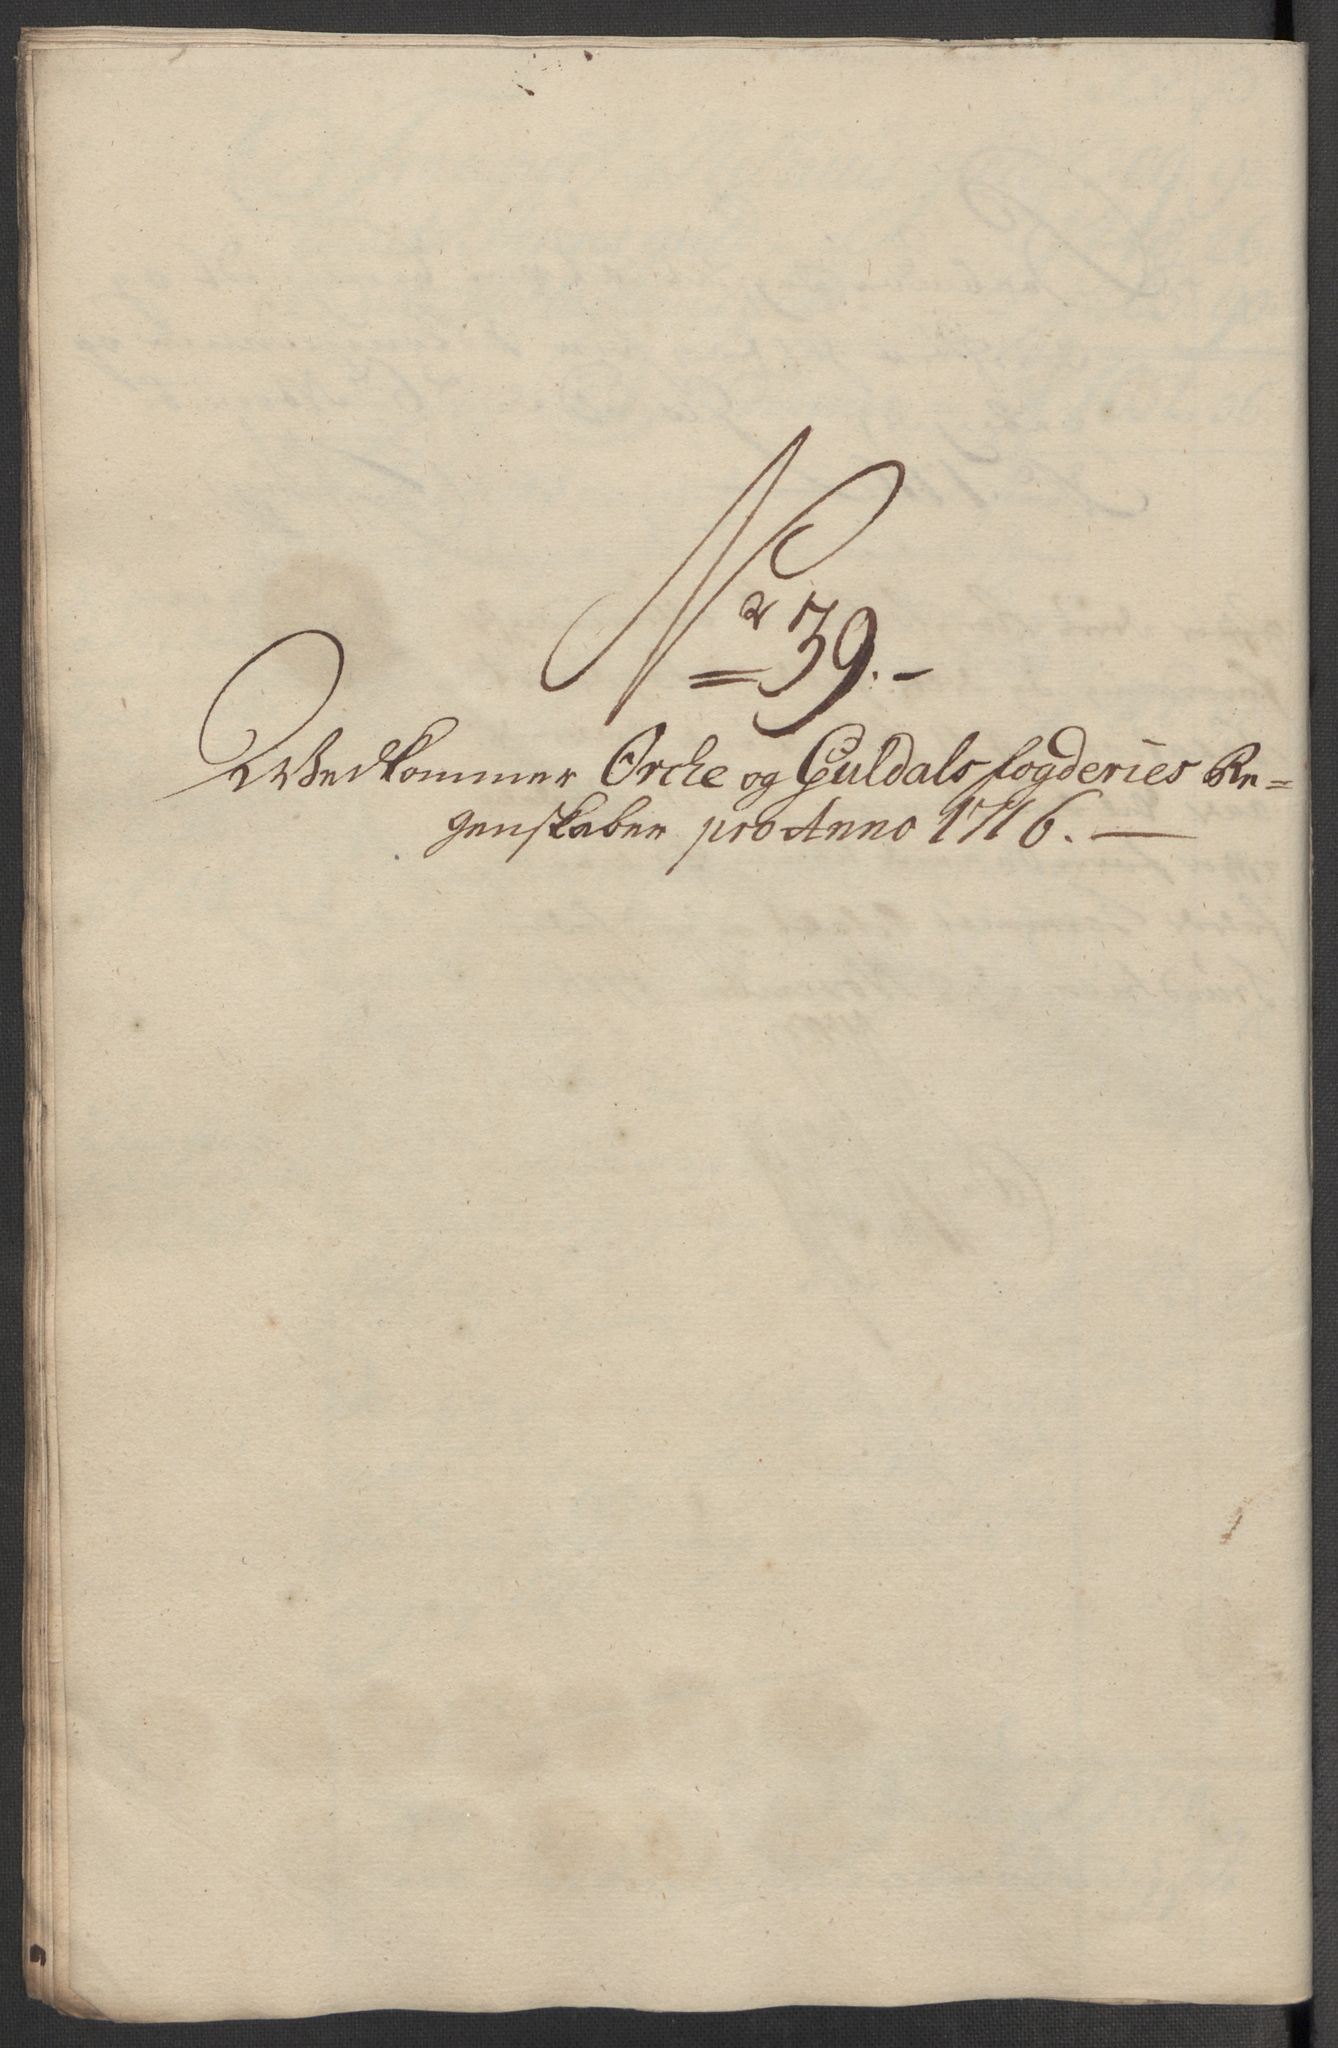 Nr 39.
Wedkommer Orche og Guldals fogderies Re=
genskaber pro Anno 1716.